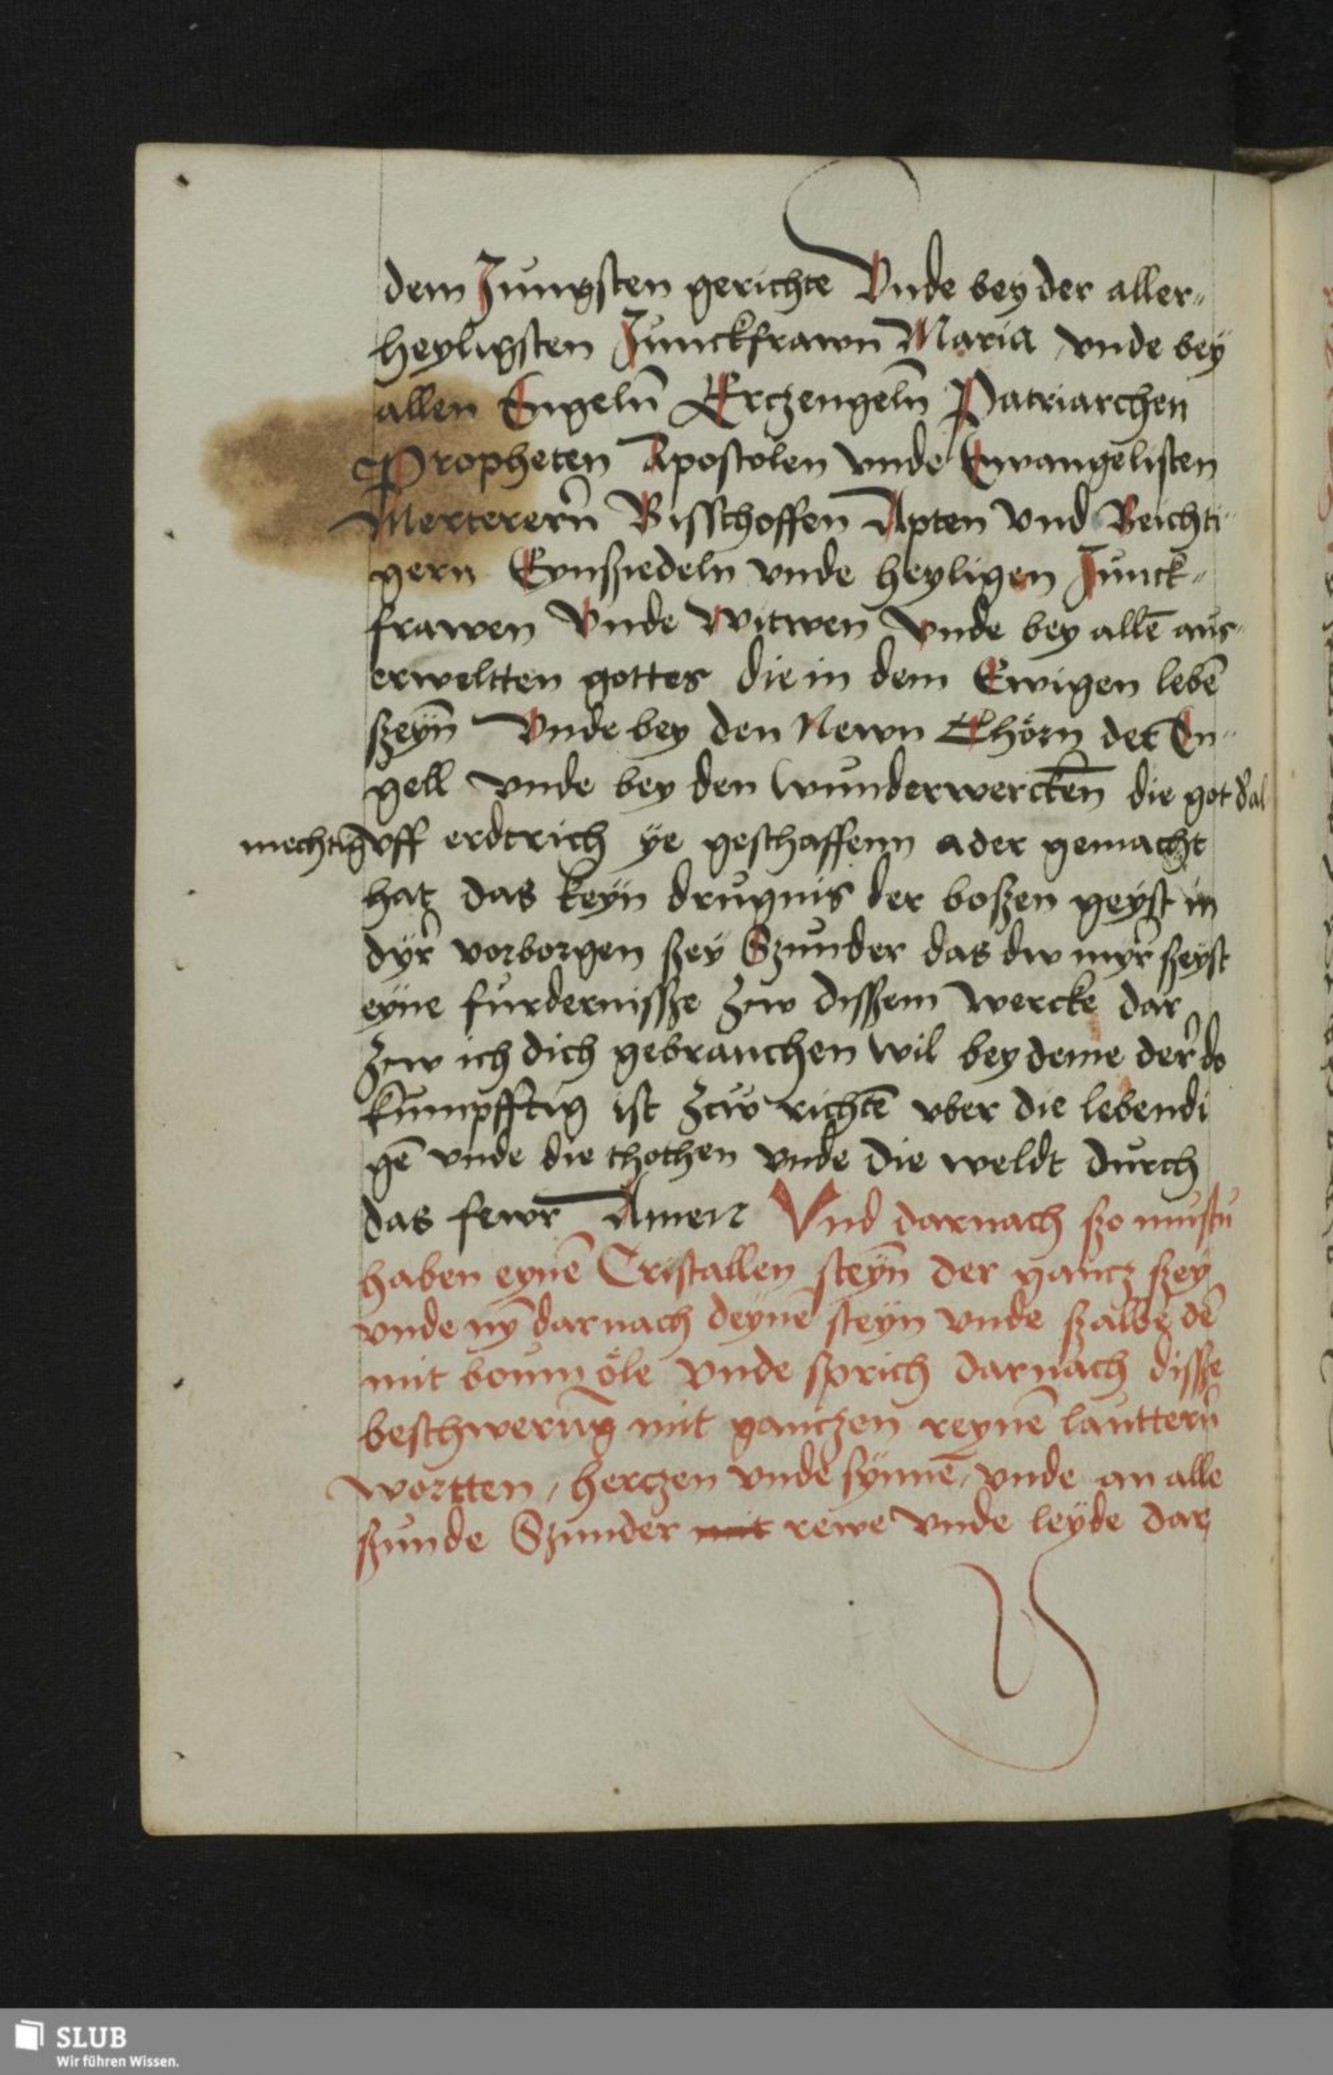 dem Jungsten gerichte Vnde bey der aller-
heyligsten Junckfrawn Maria vnde bey
allen Engeln̄ Erczengeln̄ Patriarchen
Propheten Apostolen vnde Ewangelisten
Merterern̄ Bisschoffen Apten Vnd Beichti-
gern Eynsziedeln vnde heyligen Junck-
frawen Vnde Witwen Vnde bey allē aus-
erweltten gottes die in dem Ewigen lebē
szeyn̄ Vnde bey den Newn Chörn der En-
gell vnde bey den wunderwerckēn die got d' al
mechtig vff erdtrich ÿe geschaffenn ader gemacht
hat das keyn drugnis der boszen geyst in
dyr vorborgen szey Szunder das dw myr szeyst
eyne furdernissze zcw disszem wercke dar
zcw ich dich gebrauchen wil bey deme der do
kumpfftig ist zcw richtē vber die lebendi
gē vnde die thothen vnde die weldt durch
das fewr Amen Vnd darnach szo mustu
haben eynē Cristallen steyn̄ der gancz szey
vnde nȳ darnach deynē steyn vnde szalbe dē
mit boum öle vnde sprich darnach dissze
beschwerūg mit ganczen reynē lauttern̄
wortten, herczen vnde synnē, vnde an alle
szunde Szunder mit rewe vnde leyde dar
SLUB
Wir führen Wissen.